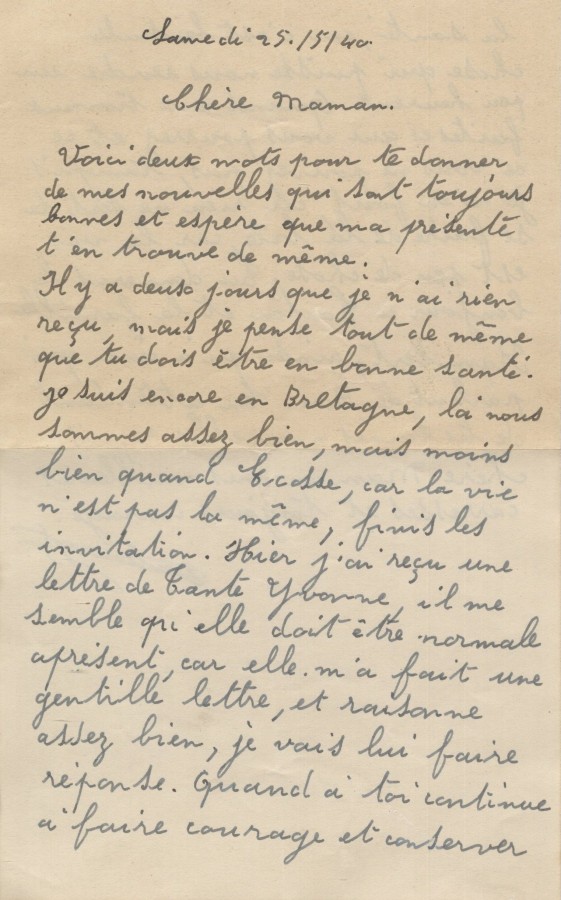 Samedi 25./5/40.
Chère Maman.
Voici deux mots pour te donner
de mes nouvelles qui sont toujours
bonnes et espère que ma présente
t'en trouve de même.
Il y a deux jours que je n'ai rien
reçu, mais je pense tout de même
que tu dois être en bonne santé.
Je suis encore en Bretagne, là nous
sommes assez bien, mais moins
bien quand Ecosse, car la vie
n'est pas la même, finis les
invitation. Hier j'ai reçu une
lettre de Tante Yvonne, il me
semble qu'elle doit être normale
aprésent, car elle m'a fait une
gentille lettre, et raisonne
assez bien, je vais lui faire
réponse. Quand à toi continue
à faire courage et conserver